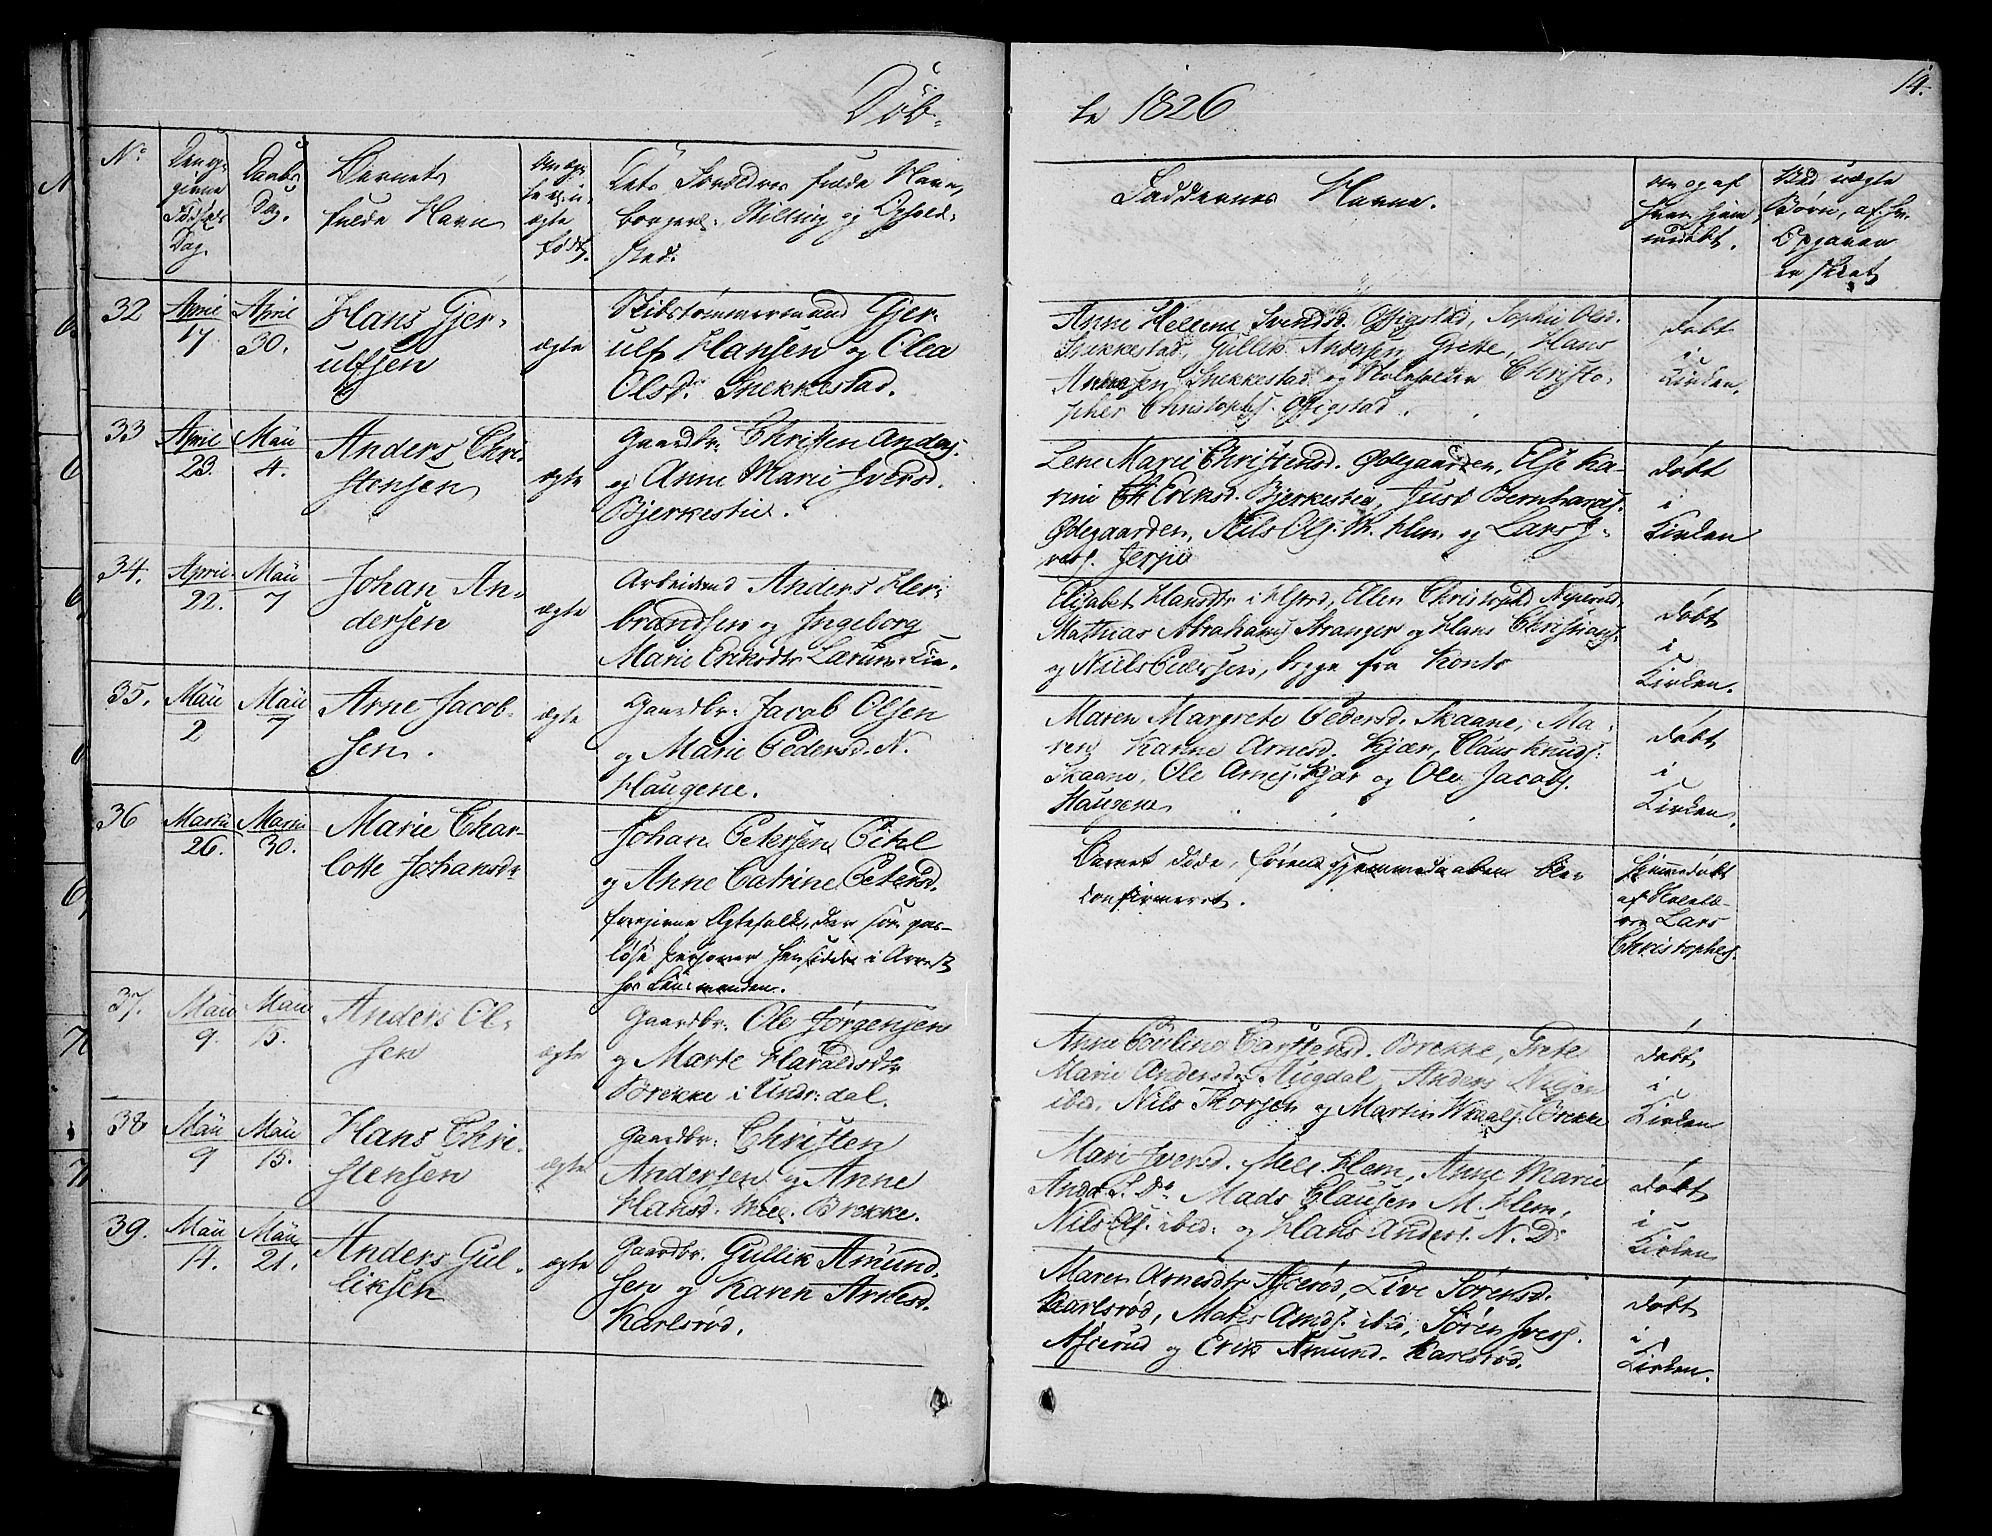 Døb-
te 1826
14.
No
Den op-
givne
Fødsels
Dag.
Daabs
Dag.
Barnets
fulde Navn
Om æg-
te el. u-
ægte
født.
Dets Forældres fulde Navn,
borgerl. Stilling og Opholds-
sted.
Faddernes Navne.
Om og af
hvem hjem-
medøbt.
Ved uægte
Børn, af hv.
Opgaven
er skeet
32
April
17
April
30.
Hans Gjer-
ulfsen
ægte
Skibstømmermand Gjer-
ulf Hansen og Olea
Olsdr. Snekkestad.
Anne Hellene Svendsd. Gjigstad, Sophie Olsd.
Snekkestad, Gullik Andersen Grette, Hans
Andersen Snekkestad og Skoleholder Christo-
pher Christophs. Gjigstad.
døbt
i
Kirken.
33
April
23.
Maii
4.
Anders Chri-
stensen
ægte
Gaardbr. Christen Anders.
og Anne Marie Iversd.
Bjerkestie.
Lene Marie Christensd. Ødegaarden, Else Ka-
rine Eriksd. Bjerkestie, Just Bernhards.
Ødegaarden, Nils Ols. M. Klem og Lars I-
vers. Jerpe
døbt
i
Kirken
34.
April
22.
Maii
7
Johan An-
dersen
ægte
Arbeidsmd Anders Her-
brandsen og Ingeborg
Marie Eriksdtr
Elisabet Hansdtr
Mathias Abrahams. Stranger og Hans Christians.
og Niels Pedersen, begge fra
døbt
i
Kirken.
35.
Maii
2
Maii
7
Arne Jacob-
sen.
ægte
Gaardbr. Jacob Olsen
og Marie Pedersd. N.
Haugene.
Maren Margrete Pedersd. Skaane, Ma-
ren Kanne Arnesd. Kjær, Claus Knuds.
Skaane, Ole Arnes. Kjær og Ole Jacobs.
Haugene
døbt
i
Kirken.
36
Martii
26.
Martii
30.
Marie Char-
lotte Johansdr
Johan Petersen Pihl
og Anne Catrine Petersd.
foregivne Ægtefolk, der som pas-
løse Personer hensidder i Arrest
hos Lensmanden.
Barnet døde, førend Hjemmedaaben blev
confirmeret.
hjemmedøbt
af Skolelæ-
rer Lars
Christophers.
37.
Maii
9.
Maii
15.
Anders Ol-
sen
ægte
Gaardbr. Ole Jørgensen
og Marte Haraldsdr
Brekke i Undr:dal.
Anne Pauline Carstensd. Brekke, Grete
Marie Andersdr Augdal, Anders Nilsen
ibid. Nils Thorsen og Martin Brekke
døbt
i
Kirken
38
Maii
9
Maii
15.
Hans Chri-
stensen
ægte
Gaardbr. Christen
Andersen og Anne
Hansd. Mel. Brekke.
Mari Iversd. Mell. Klem, Anne Marie
Do Mads Clausen M. Klem,
Nils Ols. ibid. og Hans Anders. N. Do
døbt
i
Kirken
39.
Maii
14.
Maii
21.
Anders Gul-
liksen
ægte
Gaardbr. Gullik Amund-
sen og Karen Arnesd.
Karlsrød.
Maren Arnesdtr Askerød, Live Sørensd.
Karlsrød, Mathis Amds. ibid, Søren Ivers.
og Erik Amund. Karlsrød.
døbt
i
Kirken.